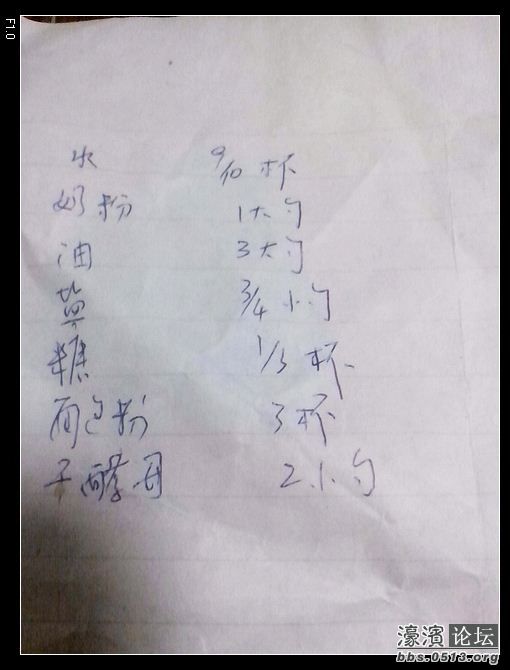 F1.0
水 9/10 杯
奶粉 1大勺
油 3大勺
盐 3/4 小勺
糖 1/3 杯
面包粉 3杯
干酵母 2小勺
濠濱论坛
bbs.0513.org